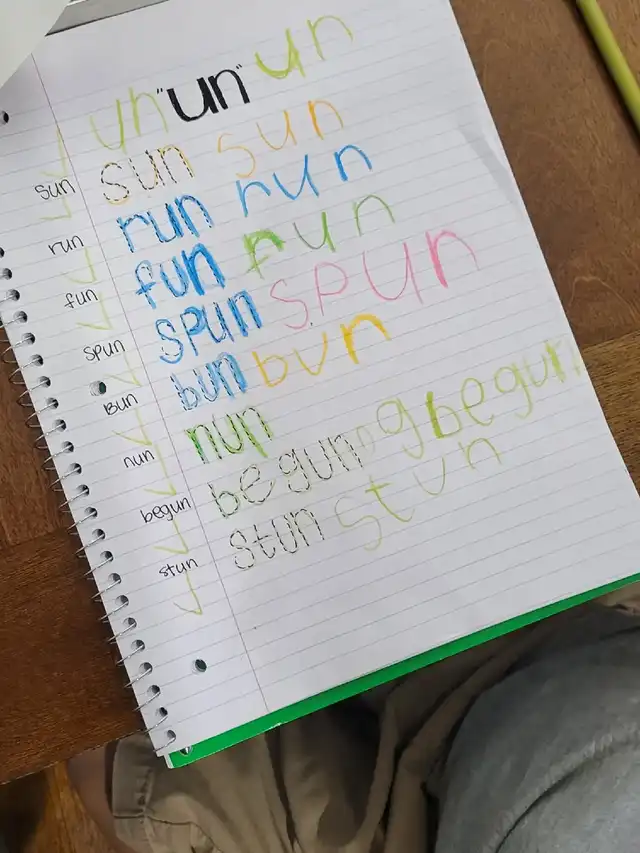 un "un" un
sun sun sun
run run run
fun fun fun
spun spun spun
Bun bun bun
nun nun
begun begun g begun
stun stun stun